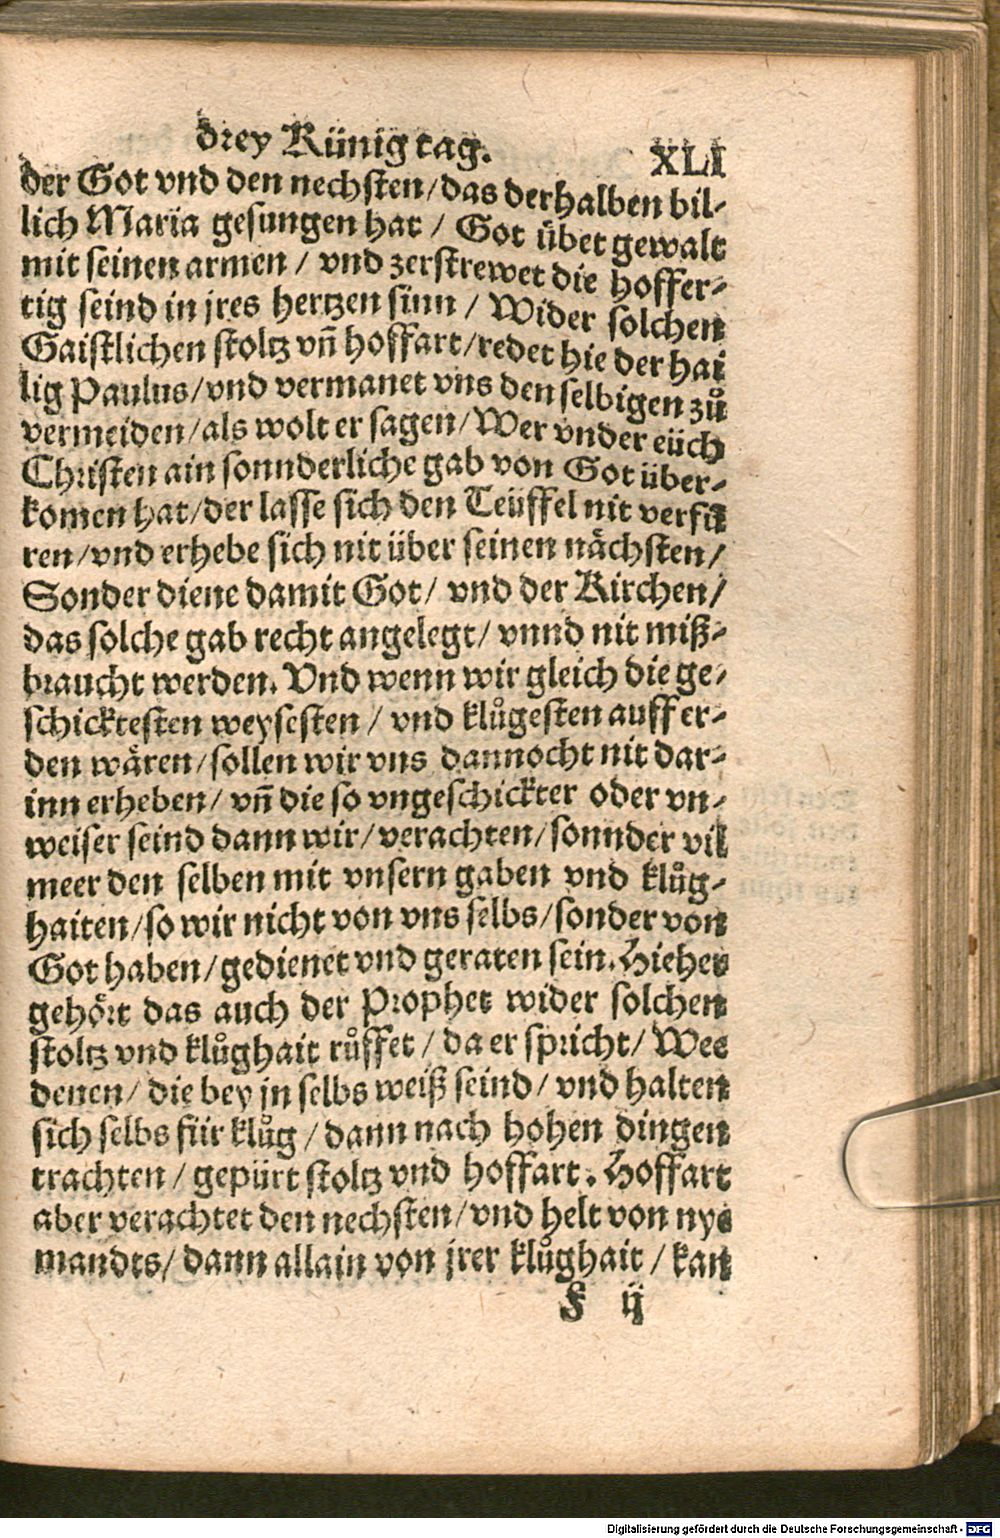 drey Künig tag.
XLI
der Got vnd den nechsten/das derhalben bil-
lich Maria gesungen hat / Got übet gewalt
mit seinen armen / vnd zerstrewet die hoffer-
tig seind in jres hertzen sinn / Wider solchen
Gaistlichen stoltz vñ hoffart/redet hie der hai
lig Paulus/vnd vermanet vns den selbigen zů
vermeiden/als wolt er sagen/Wer vnder eüch
Christen ain sonnderliche gab von Got über-
komen hat/der lasse sich den Teüffel nit verfü
ren/vnd erhebe sich nit über seinen nächsten/
Sonder diene damit Got/ vnd der Kirchen/
das solche gab recht angelegt/ vnnd nit miß-
braucht werden. Vnd wenn wir gleich die ge-
schicktesten weysesten / vnd klůgesten auff er-
den wären/sollen wir vns dannocht nit dar-
inn erheben/ vñ die so vngeschickter oder vn-
weiser seind dann wir/verachten/sonnder vil
meer den selben mit vnsern gaben vnd klůg-
haiten/so wir nicht von vns selbs/sonder von
Got haben/gedienet vnd geraten sein. Hieher
gehört das auch der Prophet wider solchen
stoltz vnd klůghait růffet / da er spricht/ Wee
denen/ die bey jn selbs weiß seind/ vnd halten
sich selbs für klůg / dann nach hohen dingen
trachten / gepürt stoltz vnd hoffart. Hoffart
aber verachtet den nechsten/vnd helt von nye
mandts/ dann allain von jrer klůghait / kan
f ij
Digitalisierung gefördert durch die Deutsche Forschungsgemeinschaft - DFG